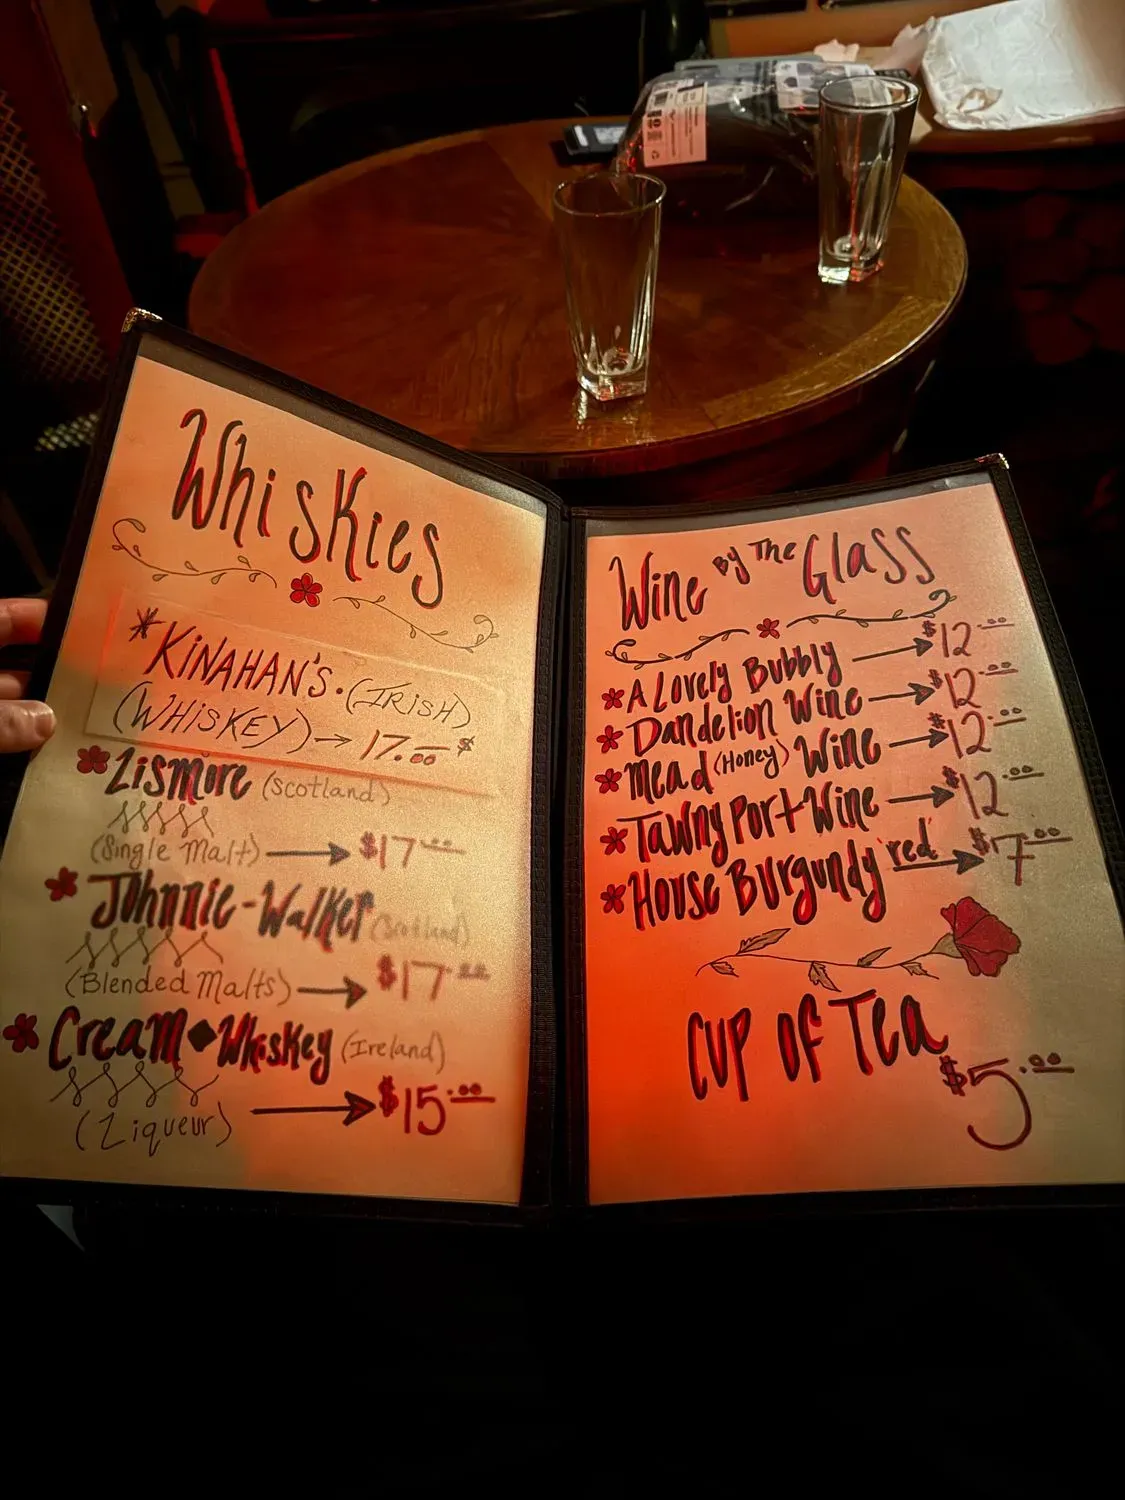 Whiskies
*KINAHAN'S. (IRISH)
(WHISKEY) → 17.00 $
Lismore (Scotland)
(Single Malt) → $17.00
Johnnie-Walker (Scotland)
(Blended Malts) → $17.00
Cream◆Whiskey (Ireland)
(Liqueur) → $15.00
Wine By The Glass
A Lovely Bubbly → $12.00
Dandelion Wine → $12.00
Mead (Honey) Wine → $12.00
Tawny Port Wine → $12.00
House Burgundy 'red' → $7.00
Cup of Tea
$5.00